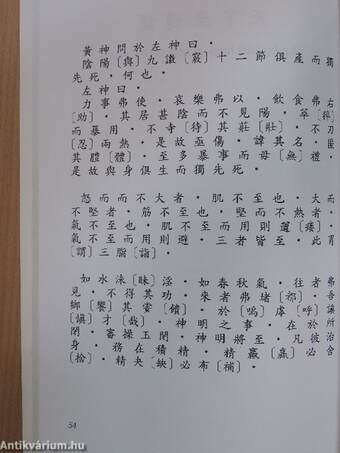 黃神問於左神曰．
陰陽〔與〕九譤〔竅〕十二節俱產而獨
先死．何也．
左神曰．
力事弗使．哀樂弗以．飲食弗
右〔助〕．其居甚陰而不見陽．萃〔猝〕
而暴用．不寺〔待〕其莊〔壯〕．不刃
〔忍〕兩熱．是故亟傷．諱其名．匿
其體〔體〕．至多暴事而毋〔無〕禮．
是故與身俱生而獨先死．
怒而而不大者．肌不至也．大而
不堅者．筋不至也．堅而不熱者．
氣不至也．肌不至而用則〔痿〕．
氣不至而用則避．三者皆至．此胃
〔謂〕三脂〔詣〕．
如水沫〔昧〕淫．如春秋氣．往者弗
見．不得其功．來者弗堵〔覩〕．吾
鄉〔饗〕其〔饋〕．於〔嗚〕虖〔呼〕
〔慎〕才〔哉〕．神明之事．在於所
閉．審操玉閉．神明將至．凡彼治
身．務在積精．精贏必舍
〔捨〕．精夬〔缺〕必布〔補〕．
54
Antikvárium.hu